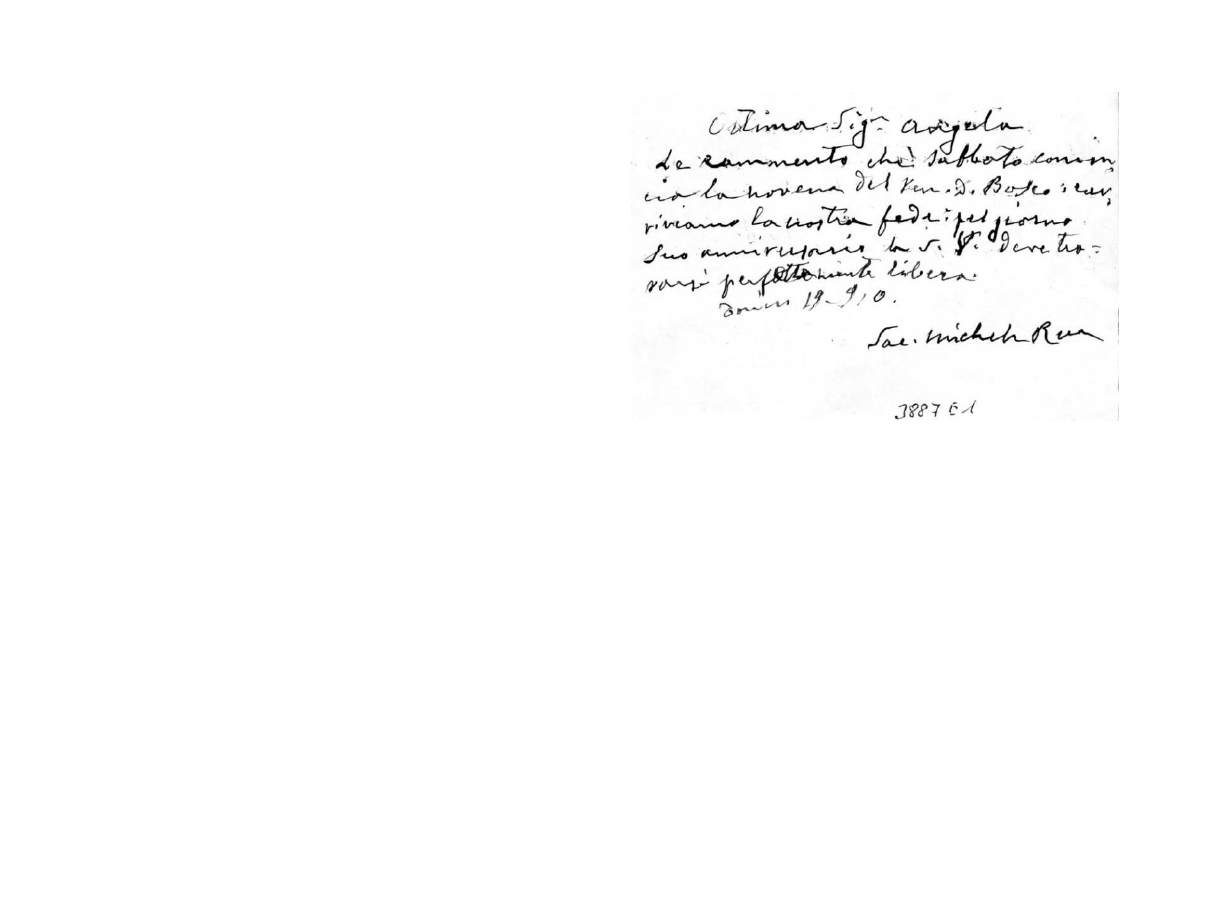 Ottima Sig.ra Angela
Le rammento che Sabbato comin
cia la novena del Ven. D. Bosco:
viviamo la nostra fede: pel giorno
suo anniversario la S. V. deve tro=
varsi perfettamente libera.
19-910.
Sac. Michele Rua
3887 E1